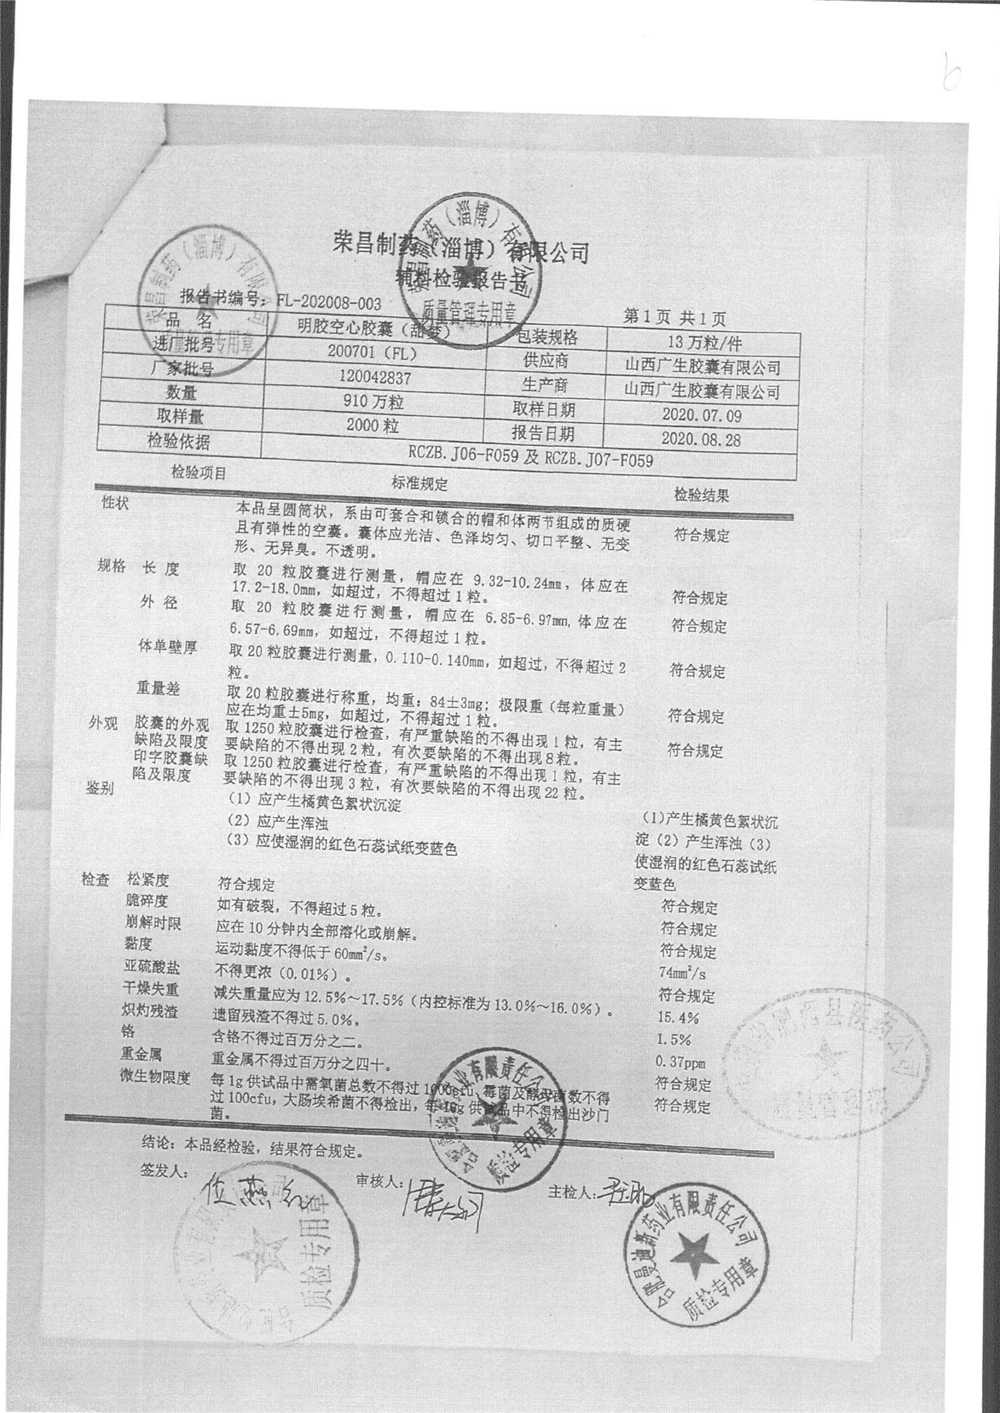 6
荣昌制药（淄博）有限公司
辅料检验报告书
报告书编号：FL-202008-003
第1页 共1页
品 名 明胶空心胶囊 包装规格 13万粒/件
进厂批号 200701（FL） 供应商 山西广生胶囊有限公司
厂家批号 120042837 生产商 山西广生胶囊有限公司
数量 910万粒 取样日期 2020.07.09
取样量 2000粒 报告日期 2020.08.28
检验依据 RCZB.J06-F059及RCZB.J07-F059
检验项目 标准规定 检验结果
性状 本品呈圆筒状，系由可套合和锁合的帽和体两节组成的质硬
且有弹性的空囊。囊体应光洁、色泽均匀、切口平整、无变 符合规定
形、无异臭。不透明。
规格 长 度 取 20 粒胶囊进行测量，帽应在 9.32-10.24mm，体应在
17.2-18.0mm，如超过，不得超过1粒。 符合规定
外 径 取 20 粒胶囊进行测量，帽应在 6.85-6.97mm,体应在
6.57-6.69mm，如超过，不得超过1粒。 符合规定
体单壁厚 取20粒胶囊进行测量，0.110-0.140mm，如超过，不得超过2
粒。 符合规定
重量差 取20粒胶囊进行称重，均重：84±3mg；极限重（每粒重量）
应在均重±5mg，如超过，不得超过1粒。 符合规定
外观 胶囊的外观 取1250粒胶囊进行检查，有严重缺陷的不得出现1粒，有主
缺陷及限度 要缺陷的不得出现2粒，有次要缺陷的不得出现8粒。 符合规定
印字胶囊缺 取1250粒胶囊进行检查，有严重缺陷的不得出现1粒，有主
陷及限度 要缺陷的不得出现3粒，有次要缺陷的不得出现22粒。
鉴别 （1）应产生橘黄色絮状沉淀 （1）产生橘黄色絮状沉
（2）应产生浑浊 淀（2）产生浑浊（3）
（3）应使湿润的红色石蕊试纸变蓝色 使湿润的红色石蕊试纸
变蓝色
检查 松紧度 符合规定 符合规定
脆碎度 如有破裂，不得超过5粒。 符合规定
崩解时限 应在10分钟内全部溶化或崩解。 符合规定
黏度 运动黏度不得低于60mm²/s。 74mm²/s
亚硫酸盐 不得更浓（0.01%）。 符合规定
干燥失重 减失重量应为12.5%～17.5%（内控标准为13.0%～16.0%）。 15.4%
炽灼残渣 遗留残渣不得过5.0%。 1.5%
铬 含铬不得过百万分之二。 0.37ppm
重金属 重金属不得过百万分之四十。 符合规定
微生物限度 每1g供试品中需氧菌总数不得过1000cfu，霉菌及酵母菌数不得
过100cfu，大肠埃希菌不得检出，每10g供试品中不得检出沙门 符合规定
菌。
结论：本品经检验，结果符合规定。
签发人：
审核人：
主检人：
质量管理专用章
质检专用章
质检专用章
合肥曼迪新药业有限责任公司
质检专用章